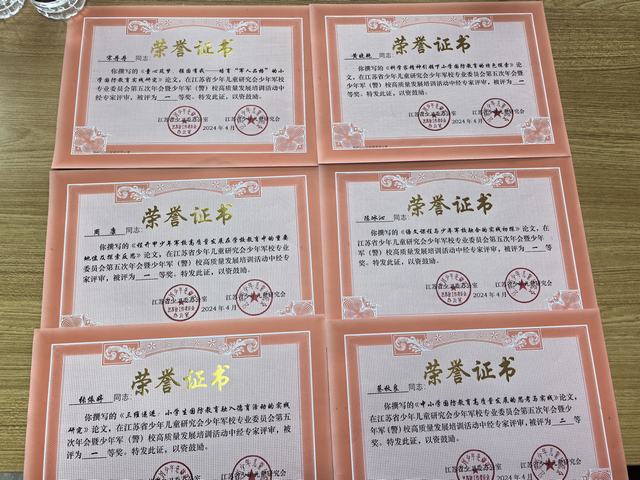 荣誉证书
宋丹丹 同志:
你撰写的《童心筑梦，强国有我——培育“军人品格”的小
学国防教育实践研究》论文，在江苏省少年儿童研究会少年军校
专业委员会第五次年会暨少年军（警）校高质量发展培训活动中
经专家评审，被评为 一 等奖。特发此证，以资鼓励。
江苏省少工委办公室
江苏省少年儿童研究会
2024年4月
荣誉证书
黄晓艳 同志:
你撰写的《科学家精神引领下小学国防教育的特色探索》论
文，在江苏省少年儿童研究会少年军校专业委员会第五次年会
暨少年军（警）校高质量发展培训活动中经专家评审，被评为
一 等奖。特发此证，以资鼓励。
江苏省少工委办公室
江苏省少年儿童研究会
2024年4月
荣誉证书
周康 同志:
你撰写的《提升甲少年军校高质量发展在学校教育中的重要
地位及探索反思》论文，在江苏省少年儿童研究会少年军校专业
委员会第五次年会暨少年军（警）校高质量发展培训活动中经专
家评审，被评为 一 等奖。特发此证，以资鼓励。
江苏省少工委办公室
江苏省少年儿童研究会
2024年4月
荣誉证书
陈冰沁 同志:
你撰写的《语文课程与少年军校融合的实践初探》论文，在
江苏省少年儿童研究会少年军校专业委员会第五次年会暨少年
军（警）校高质量发展培训活动中经专家评审，被评为 一 等
奖。特发此证，以资鼓励。
江苏省少工委办公室
江苏省少年儿童研究会
2024年4月
荣誉证书
张依婷 同志:
你撰写的《三维递进：小学生国防教育融入德育活动的实践
研究》论文，在江苏省少年儿童研究会少年军校专业委员会第五
次年会暨少年军（警）校高质量发展培训活动中经专家评审，被
评为 一 等奖。特发此证，以资鼓励。
江苏省少工委办公室
江苏省少年儿童研究会
荣誉证书
蔡牧良 同志:
你撰写的《中小学国防教育高质量发展的思考与实践》论文，
在江苏省少年儿童研究会少年军校专业委员会第五次年会暨少
年军（警）校高质量发展培训活动中经专家评审，被评为 二 等
奖。特发此证，以资鼓励。
江苏省少工委办公室
江苏省少年儿童研究会
2024年4月